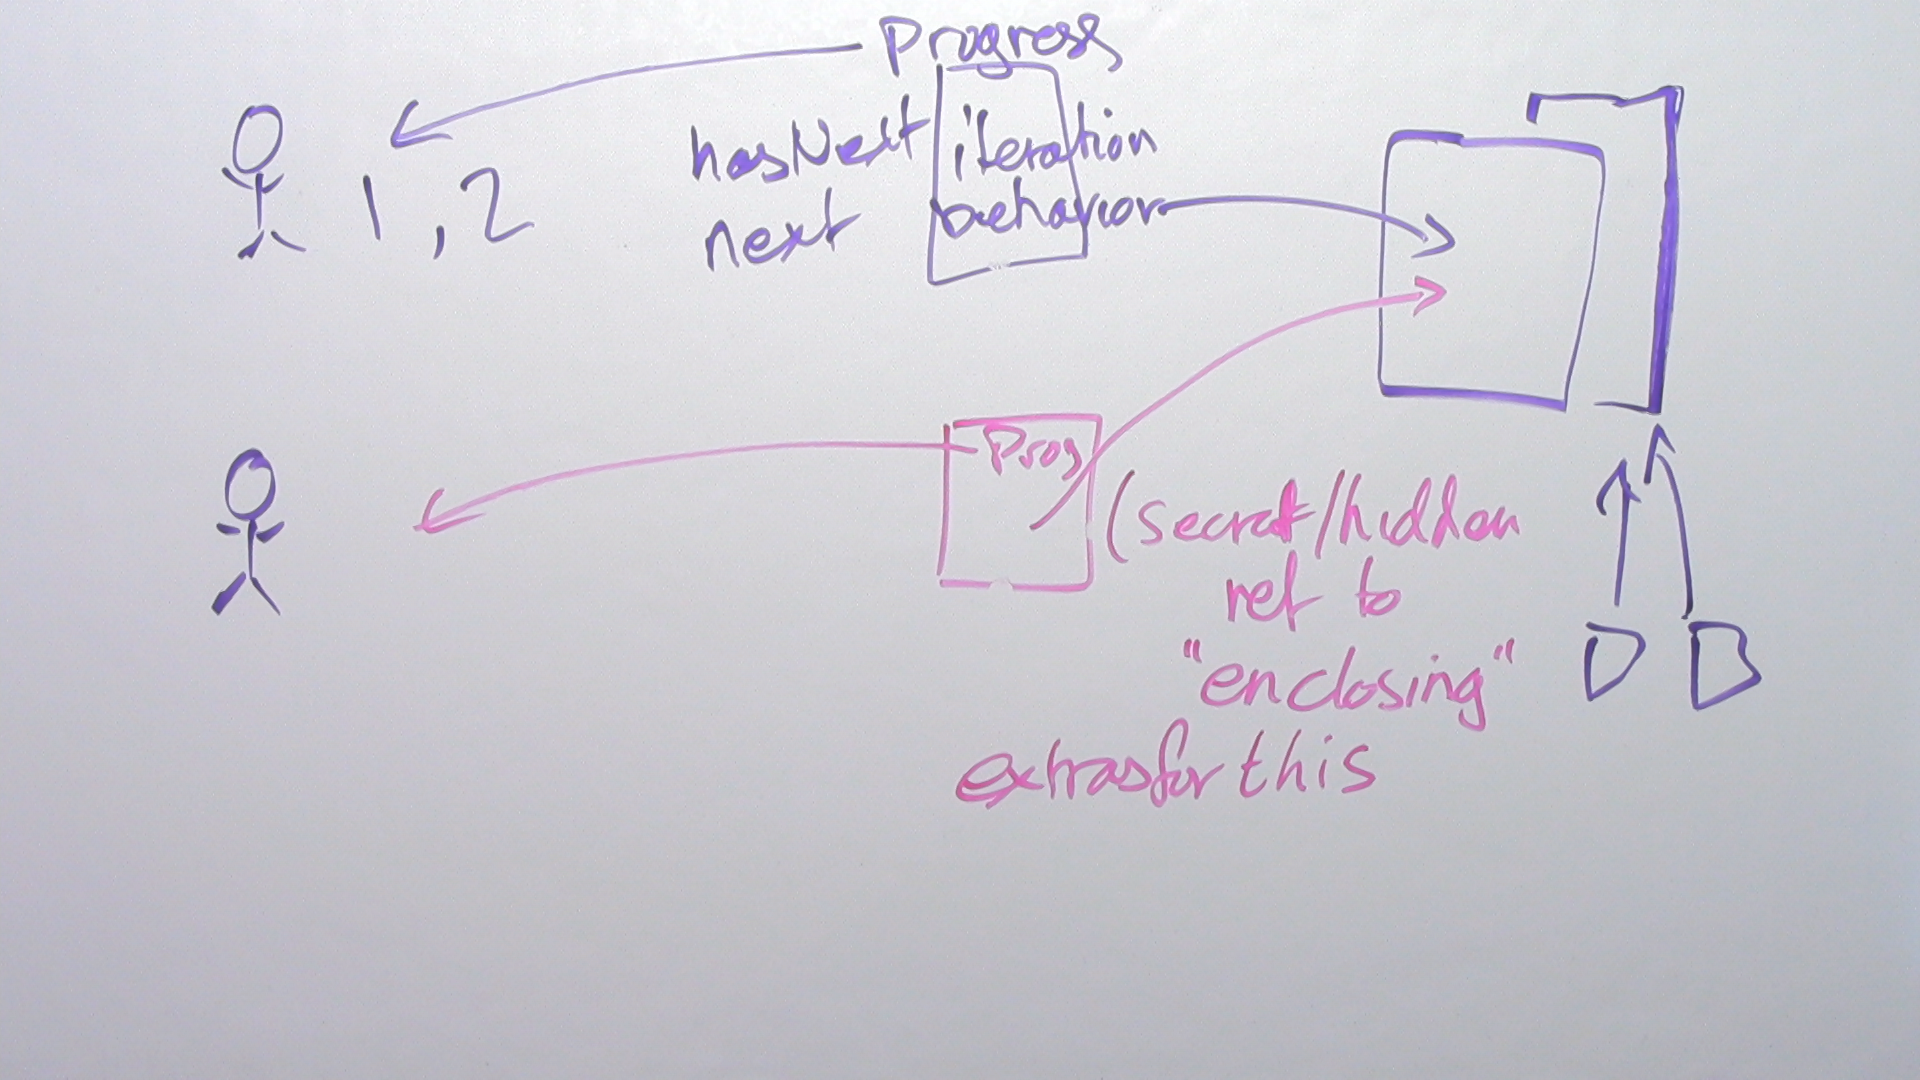 Progress
hasNext iteration
1, 2 next behavior
Prog
(secret/hidden
ref to
"enclosing"
D B
extras for this